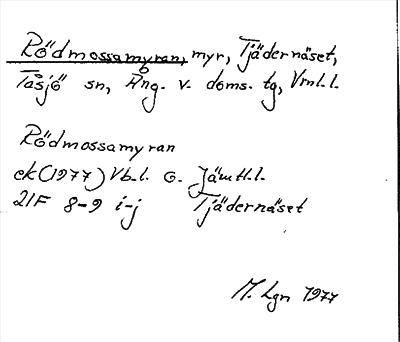 Rödmossamyran, myr, Tjädernäset,
Tåsjö sn, Ång. v. doms. tg, Vrnl.l.
Rödmossamyran
ek(1977) Vb.l. o. Jämtl.l.
21F 8-9 i-j Tjädernäset
M. Lgn 1977